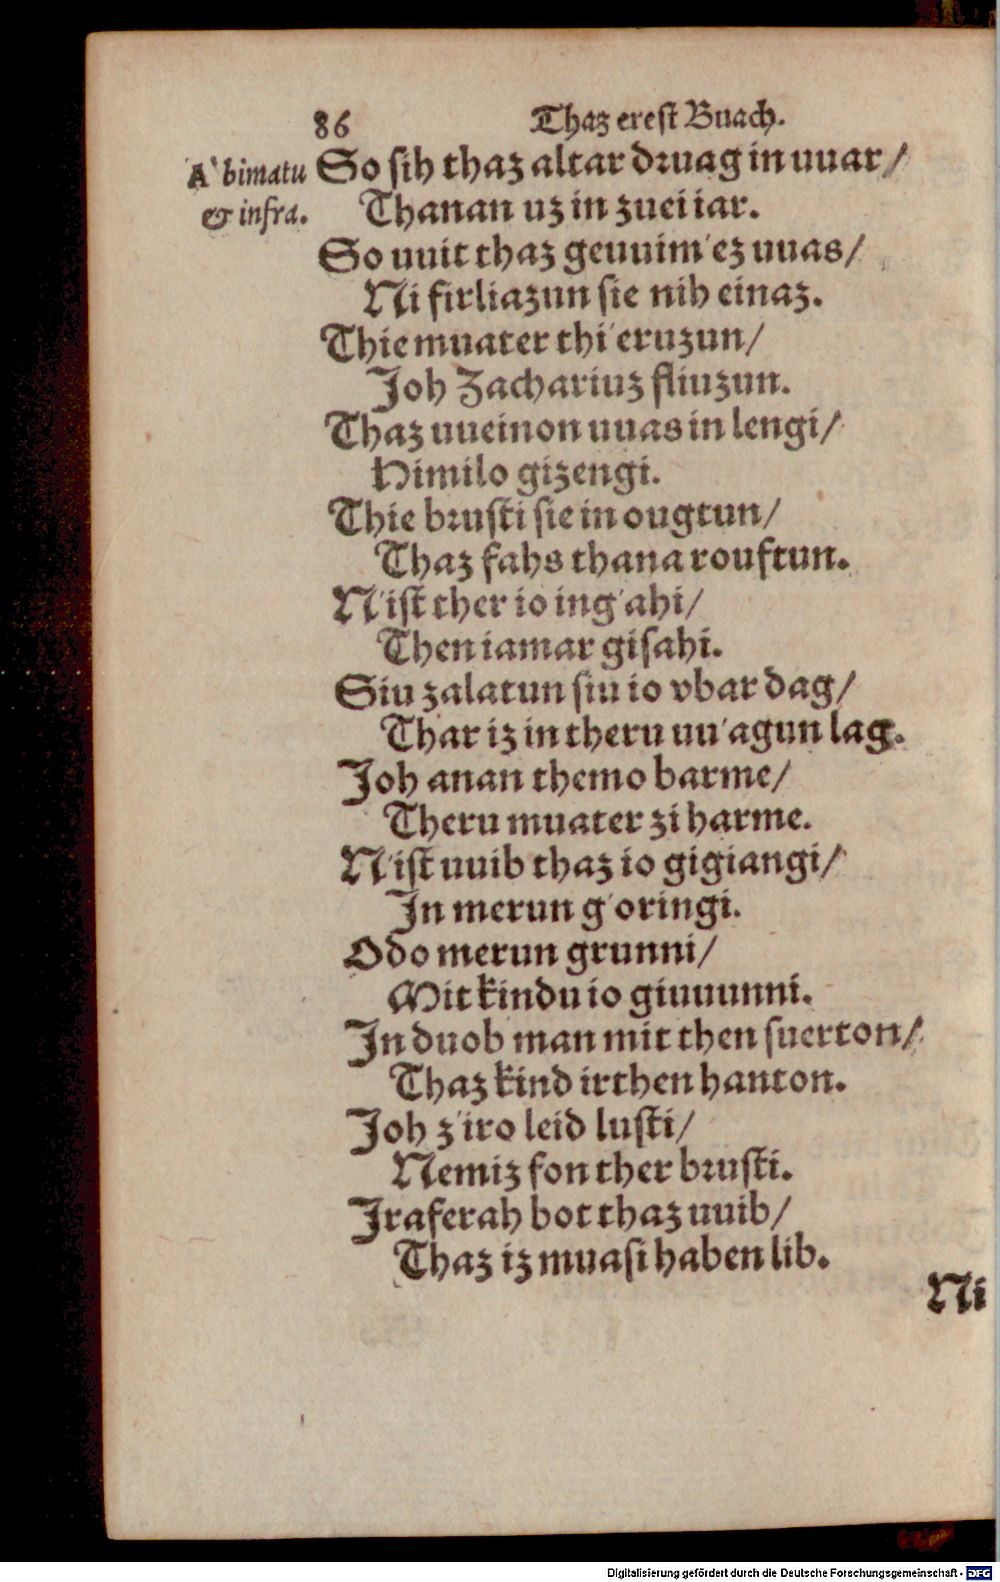 86 Thaz erest Buach.
A' bimatu
& infra.
So sih thaz altar druag in uuar/
Thanan uz in zuei iar.
So uuit thaz geuuim'ez uuas/
Ni firliazun sie nih einaz.
Thie muater thi'eruzun/
Joh Zachariuz fliuzun.
Thaz uueinon uuas in lengi/
Himilo gizengi.
Thie brusti sie in ougtun/
Thaz fahs thana rouftun.
N'ist ther io ing'ahi/
Then iamar gisahi.
Siu zalatun siu io vbar dag/
Thar iz in theru uu'agun lag.
Joh anan themo barme/
Theru muater zi harme.
N'ist uuib thaz io gigiangi/
In merun g'oringi.
Odo merun grunni/
Mit kindu io giuuunni.
In duob man mit then suerton/
Thaz kind ir then hanton.
Joh z'iro leid lusti/
Nemiz fon ther brusti.
Iraferah bot thaz uuib/
Thaz iz muasi haben lib.
Ni
Digitalisierung gefördert durch die Deutsche Forschungsgemeinschaft - DFG